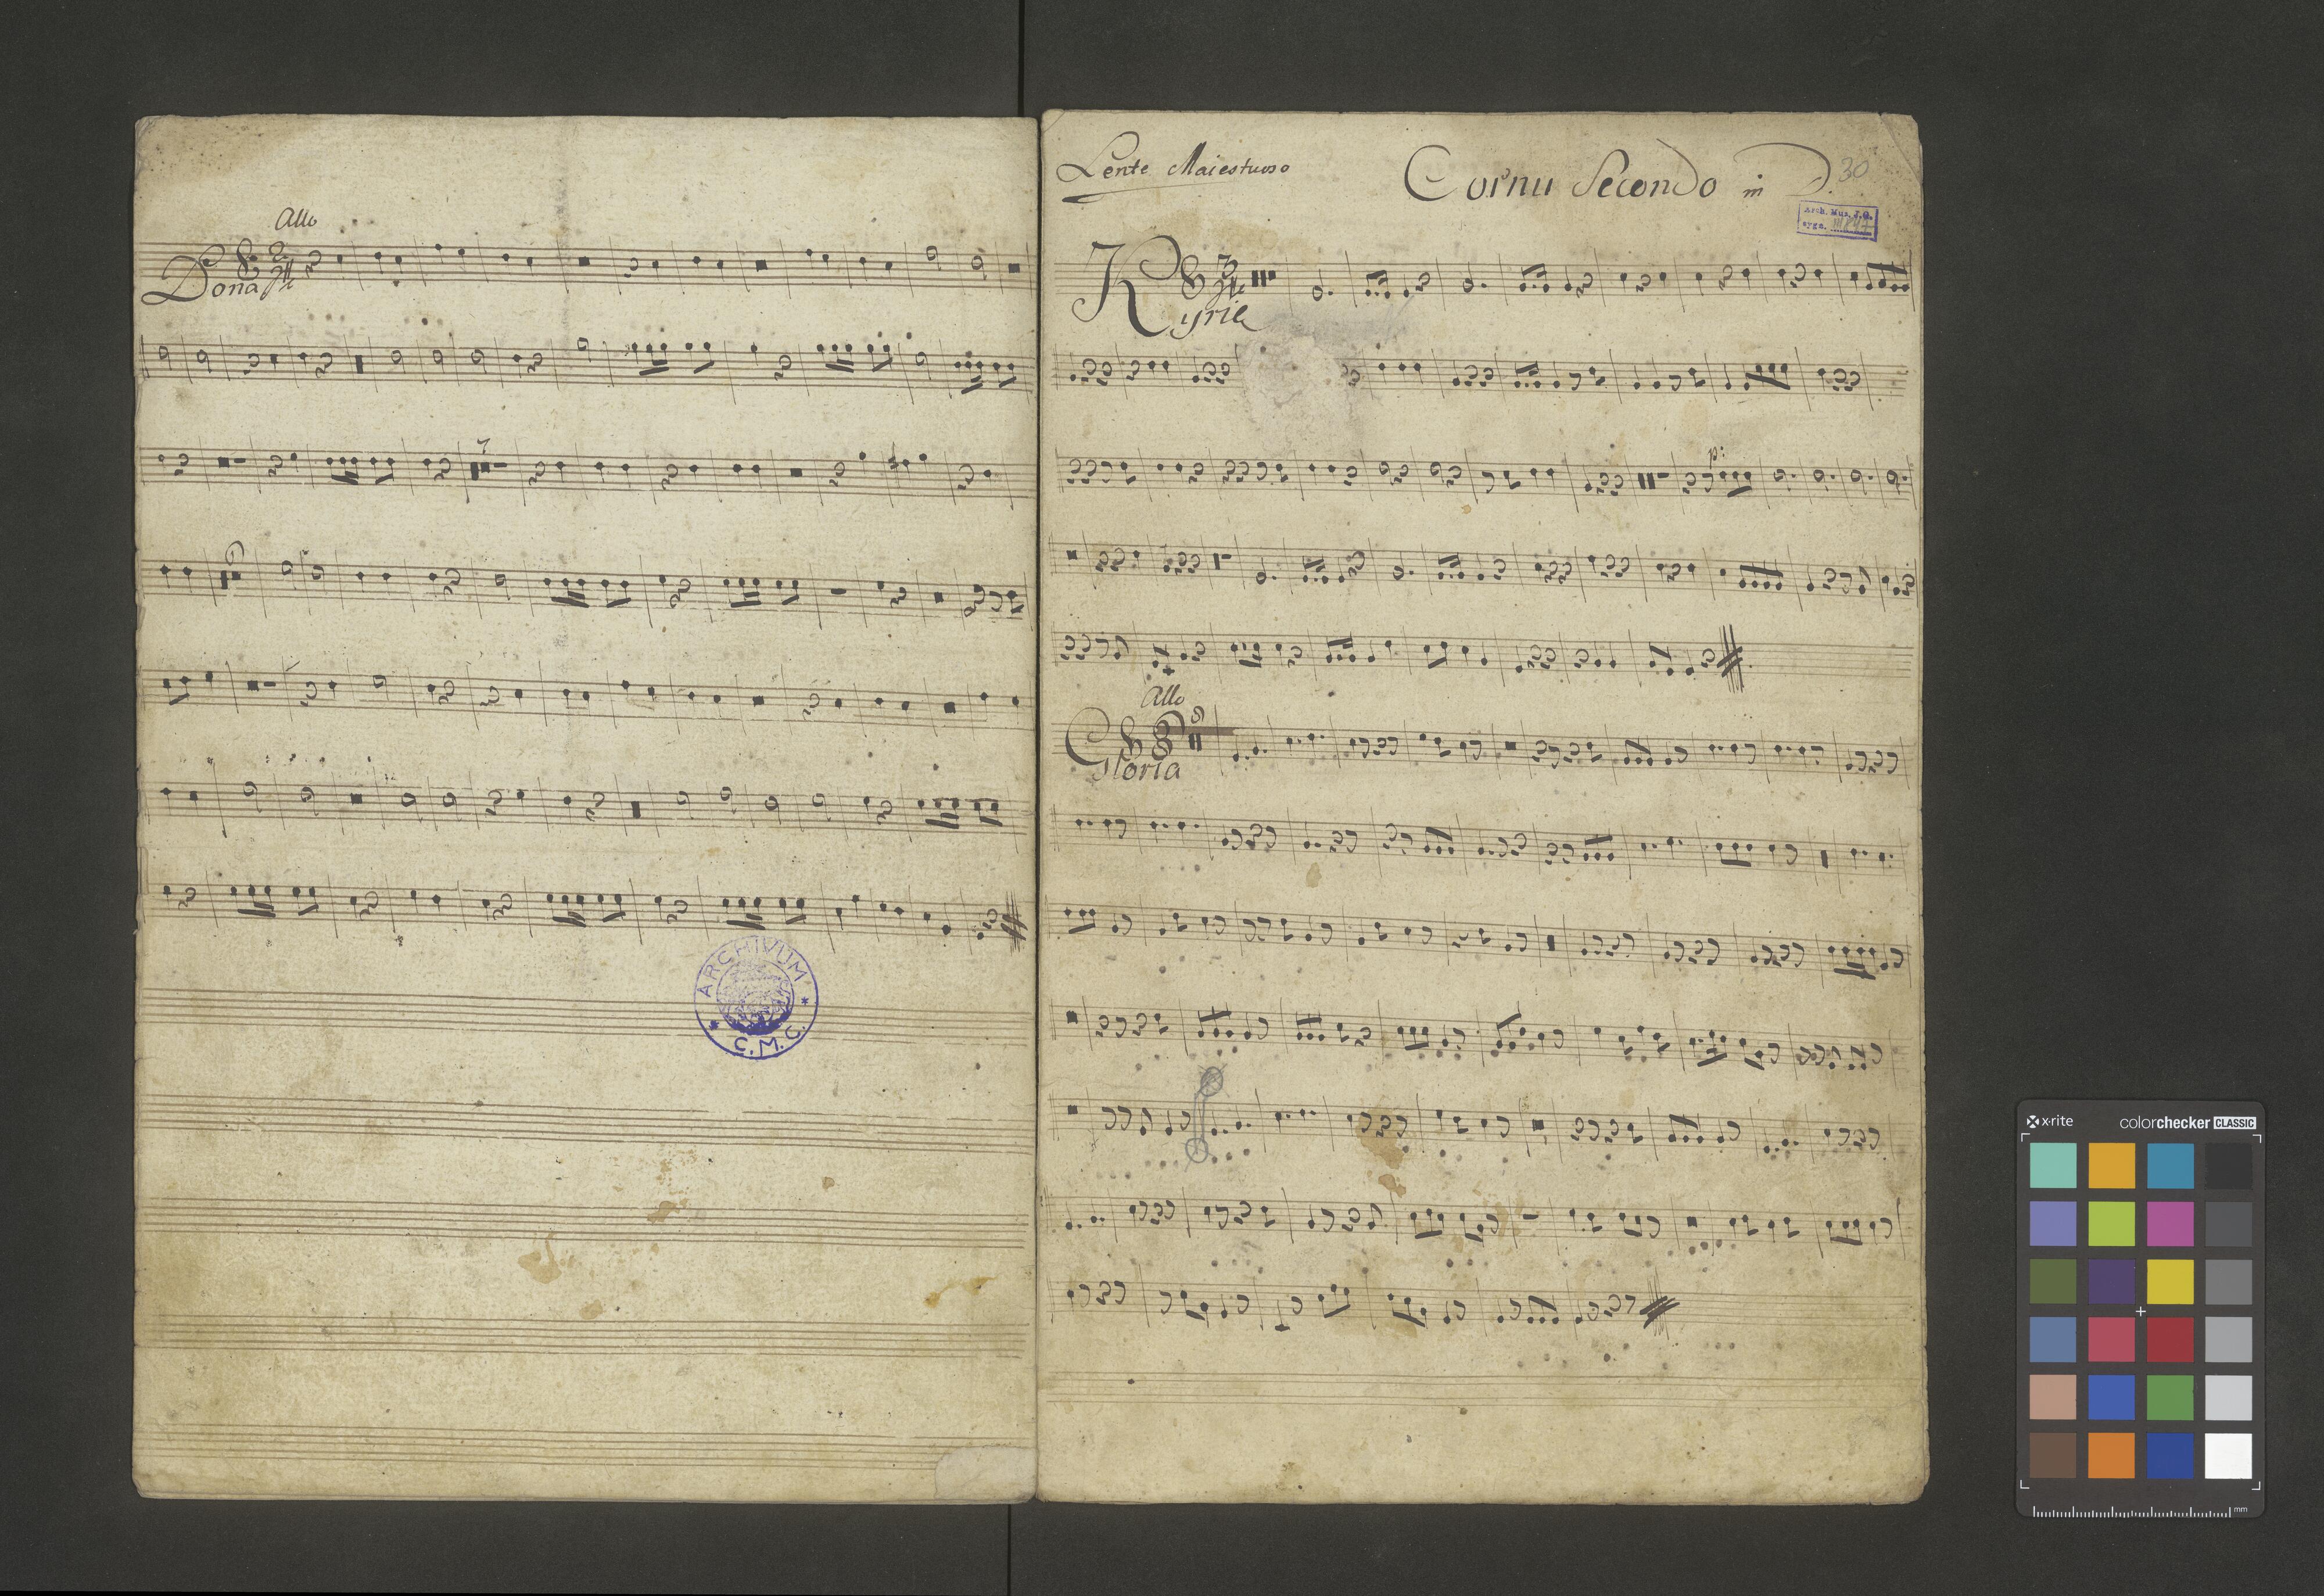 Allo
Dona
2
4
7
ARCHIVUM
C.M.C.
Lente Maiestuoso
Cornu Secondo in D.
30
Arch. Muz. J.G.
sygn.
Kyrie
3
4
p:
Allo
Gloria
x-rite
colorchecker CLASSIC
mm